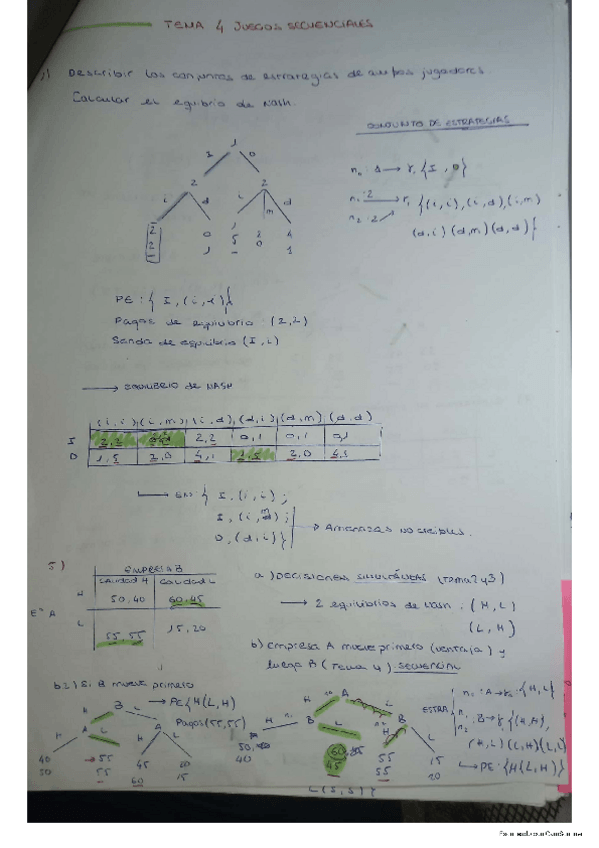 TEMA 4 JUEGOS SECUENCIALES
1) Describir los conjuntos de estrategias de ambos jugadores.
Calcular el equibrio de Nash.
CONJUNTO DE ESTRATEGIAS
1
I D
2 2
i d i m d
2 0 1 2 4
2 1 5 0 1
n. : 1 → r, {I, D}
n. : 2 → r, {(i,i),(i,d),(i,m)
n2 : 2
(d,i) (d,m) (d,d)}
PE : { I, (i,i)}
Pagos de equilibrio : (2,2)
Senda de equilibrio (I, i)
→ EQUILIBRIO DE NASH
(i,i) (i,m) (i,d) (d,i) (d,m) (d,d)
I 2,2 2,2 0,1 0,1 0,1
D 1,5 2,0 4,1 1,5 2,0 4,1
→ EN { I, (i,i) ;
I, (i,m) ;
D, (d,i)}
→ Amenazas no creibles.
5)
EMPRESA B
CALIDAD H CALIDAD L
Eª A
H 50,40 60,45
L 55,55 15,20
a) DECISIONES SIMULTÁNEAS (tema 2 y 3)
→ 2 equilibrios de Nash : (H, L)
(L, H)
b) Empresa A mueve primero (ventaja) y
luego B (Tema 4) SECUENCIAL
b2) Si B mueve primero
→ PE {H(L,H)
Pagos (55,55)
B
H L
A A
H L H L
40 55 45 20
50 55 60 15
A
H L
B B
H L H L
50,40
40
60
45
55
55
15
20
ESTRA
n. : A → {H, L}
n. : B → {(H,H),
(H,L) (L,H)(L,L)
→ PE : {H(L,H)}